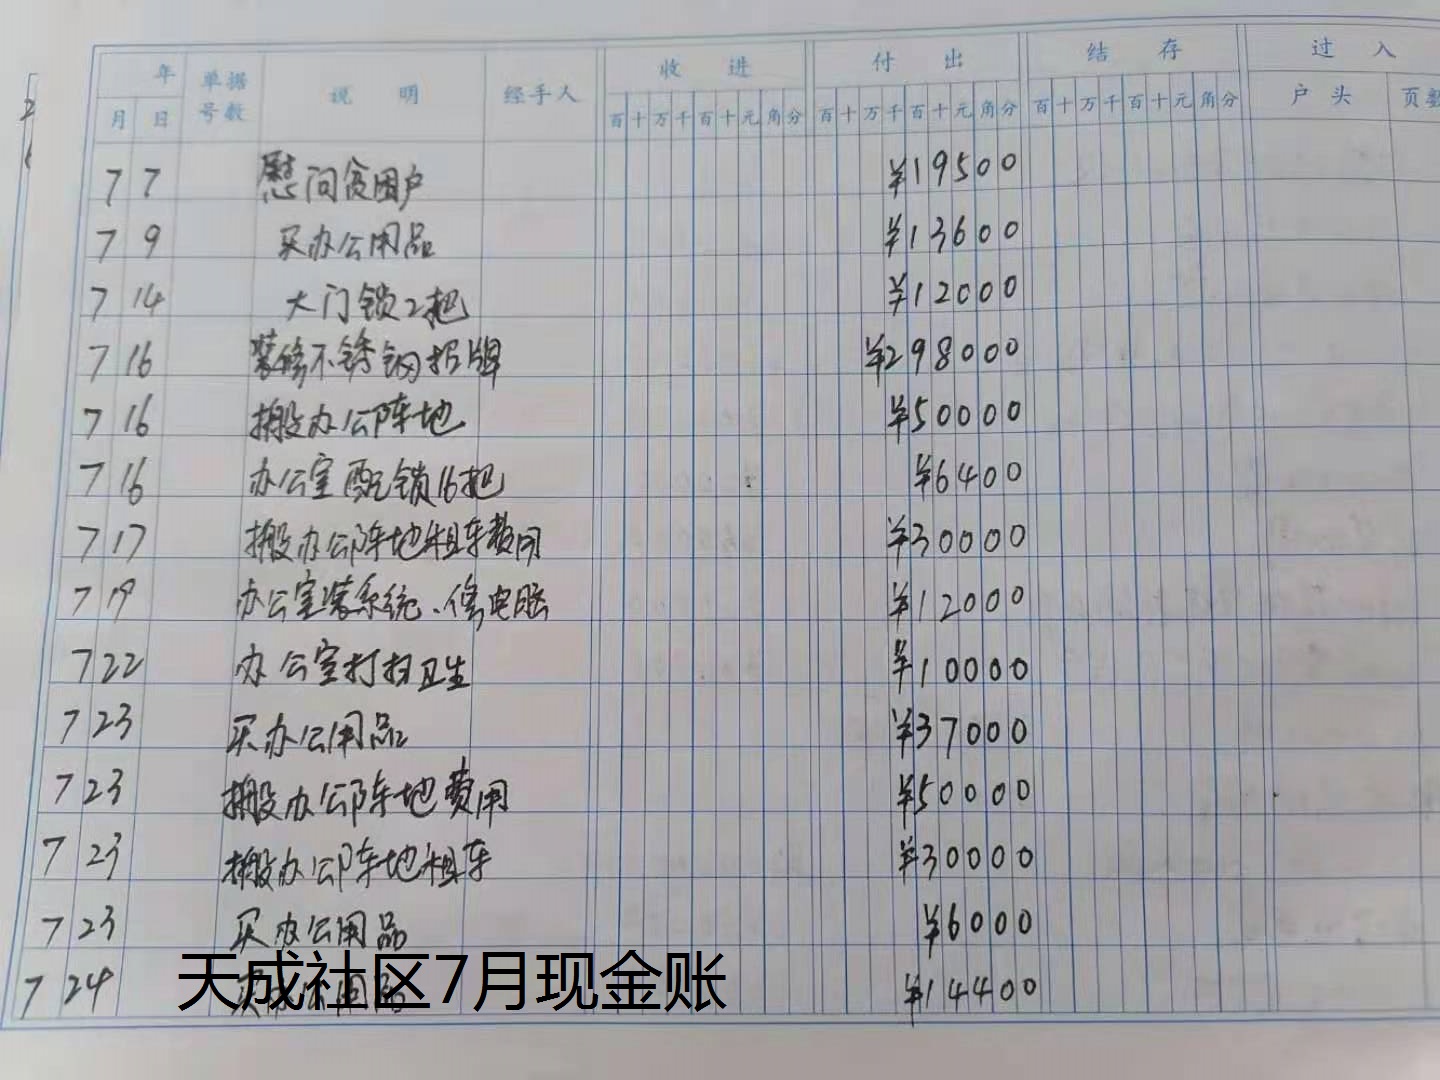 年 单据号数 说 明 经手人 收 进 付 出 结 存 过 入
月 日 百十万千百十元角分 百十万千百十元角分 百十万千百十元角分 户 头 页数
7 7 慰问贫困户 ¥19500
7 9 买办公用品 ¥13600
7 14 大门锁2把 ¥12000
7 16 装修不锈钢招牌 ¥298000
7 16 搬办公阵地 ¥50000
7 16 办公室配锁16把 ¥6400
7 17 搬办公阵地租车费用 ¥30000
7 19 办公室装系统、修电脑 ¥12000
7 22 办公室打扫卫生 ¥10000
7 23 买办公用品 ¥37000
7 23 搬办公阵地费用 ¥50000
7 23 搬办公阵地租车 ¥30000
7 23 买办公用品 ¥6000
7 24 ¥14400
天成社区7月现金账